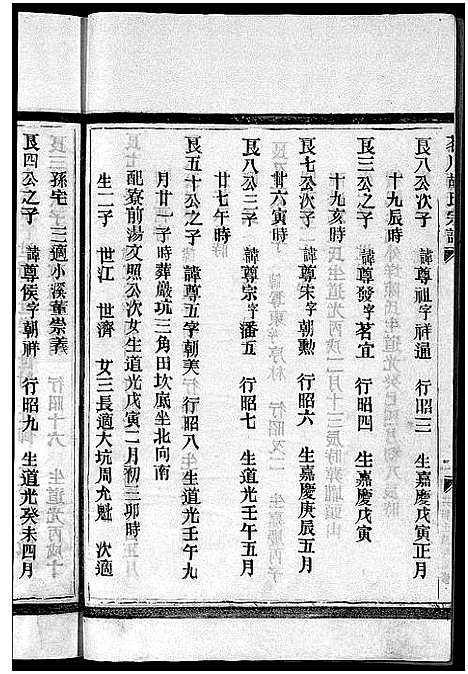 良八公次子 諱尊祖字祥通 行昭三 生嘉慶戊寅正月
十九辰時
良三公之子 諱尊發字茗宜 行昭四 生嘉慶戊寅
十九亥時
良七公次子 諱尊宋字朝勲 行昭六 生嘉慶庚辰五月
廿六寅時
良八公三子 諱尊宗字潘五 行昭七 生道光壬午五月
廿七午時
良五十公之子 諱尊五字朝美 行昭八 生道光壬午九
月廿一子時葬嚴坑三角田坎底坐北向南
配寮前湯文照公次女生道光戊寅二月初三卯時
生二子 世江 世濟 女三長適大坑周允魁 次適
孫宅 三適小溪董崇義
良四公之子 諱尊侯字朝祥 行昭九 生道光癸未四月